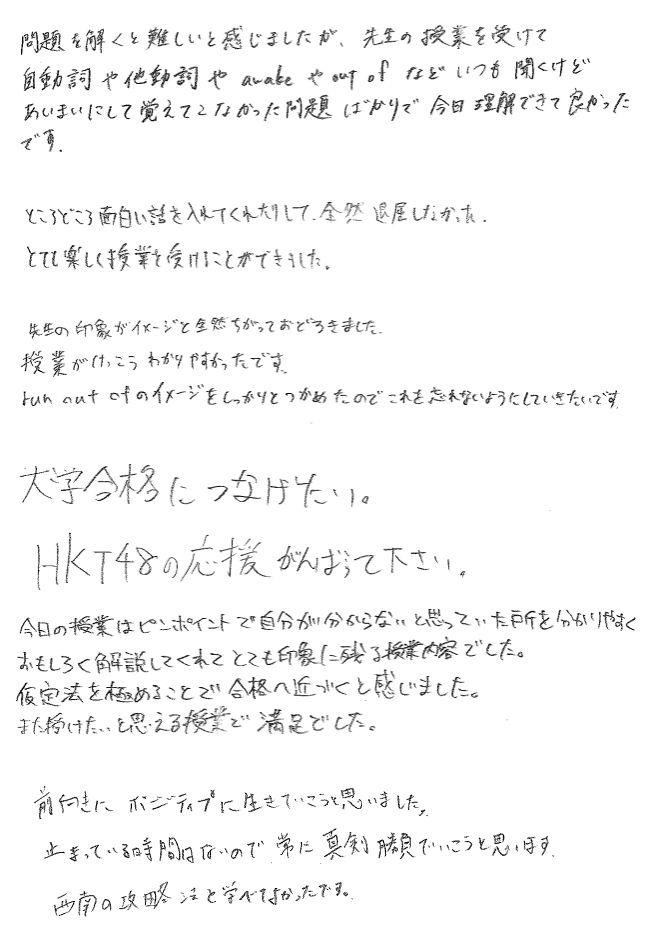 問題を解くと難しいと感じましたが、先生の授業を受けて
自動詞や他動詞や awake や out of など いつも 聞くけど
あいまいにして覚えてこなかった問題ばかりで今日理解できて良かった
です.
ところどころ面白い話を入れてくれたりして、全然退屈しなかった.
とても楽しく授業を受けることができました。
先生の印象がイメージと全然ちがっておどろきました.
授業がけっこうわかりやすかったです.
run out ofのイメージをしっかりとつかめたのでこれを忘れないようにしていきたいです.
大学合格につなげたい。
HKT48の応援がんばって下さい。
今日の授業はピンポイントで自分が分からないと思っていた所を分かりやすく
おもしろく解説してくれてとても印象に残る授業内容でした。
仮定法を極めることで合格へ近づくと感じました。
また授けたいと思える授業で満足でした。
前向きにポジティブに生きていこうと思いました.
止まっている時間はないので常に真剣勝負でいこうと思います.
西南の攻略法と学べてよかったです。